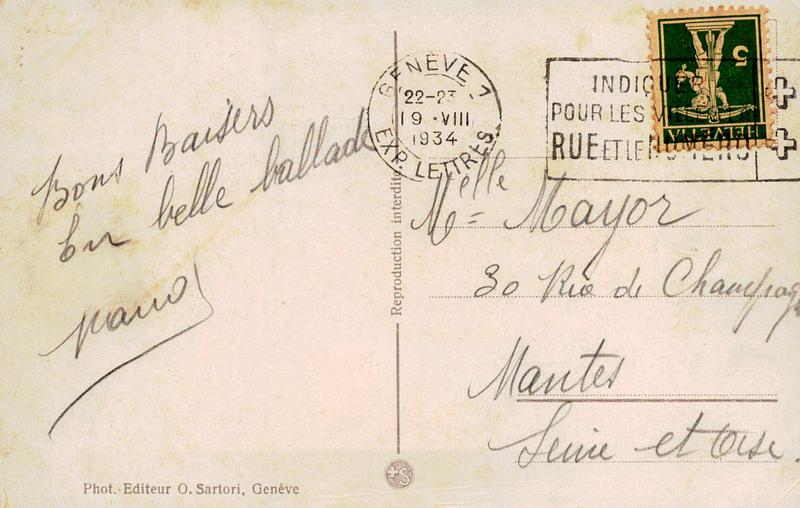 Bons Baisers
En belle ballade
GENÈVE 1
22-23
19.VIII
1934
EXP. LETTRES
INDIQUEZ
POUR LES
RUE ET LE NUMÉRO
5
HELVETIA
Melle Mayor
30 Rue de Champagne
Mantes
Seine et Oise.
Reproduction interdite
Phot.-Editeur O. Sartori, Genève